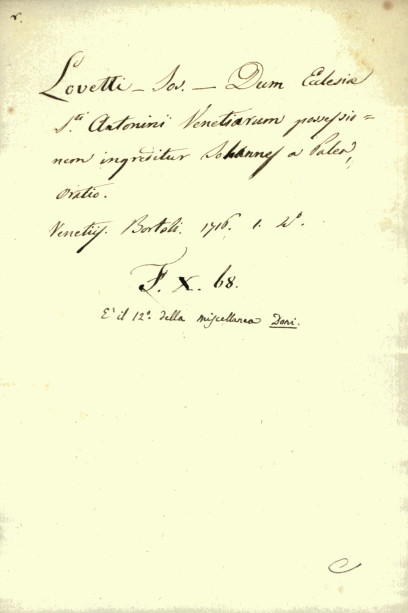 Lovetti – Jos. – Dum Ecclesiæ
S.ti Antonini Venetiarum possessio=
nem ingreditur Johannes a Palea,
Oratio.
Venetiis. Bortoli. 1716. 1. 4.º
F. X. 68.
E' il 12.º della miscellanea Doni.